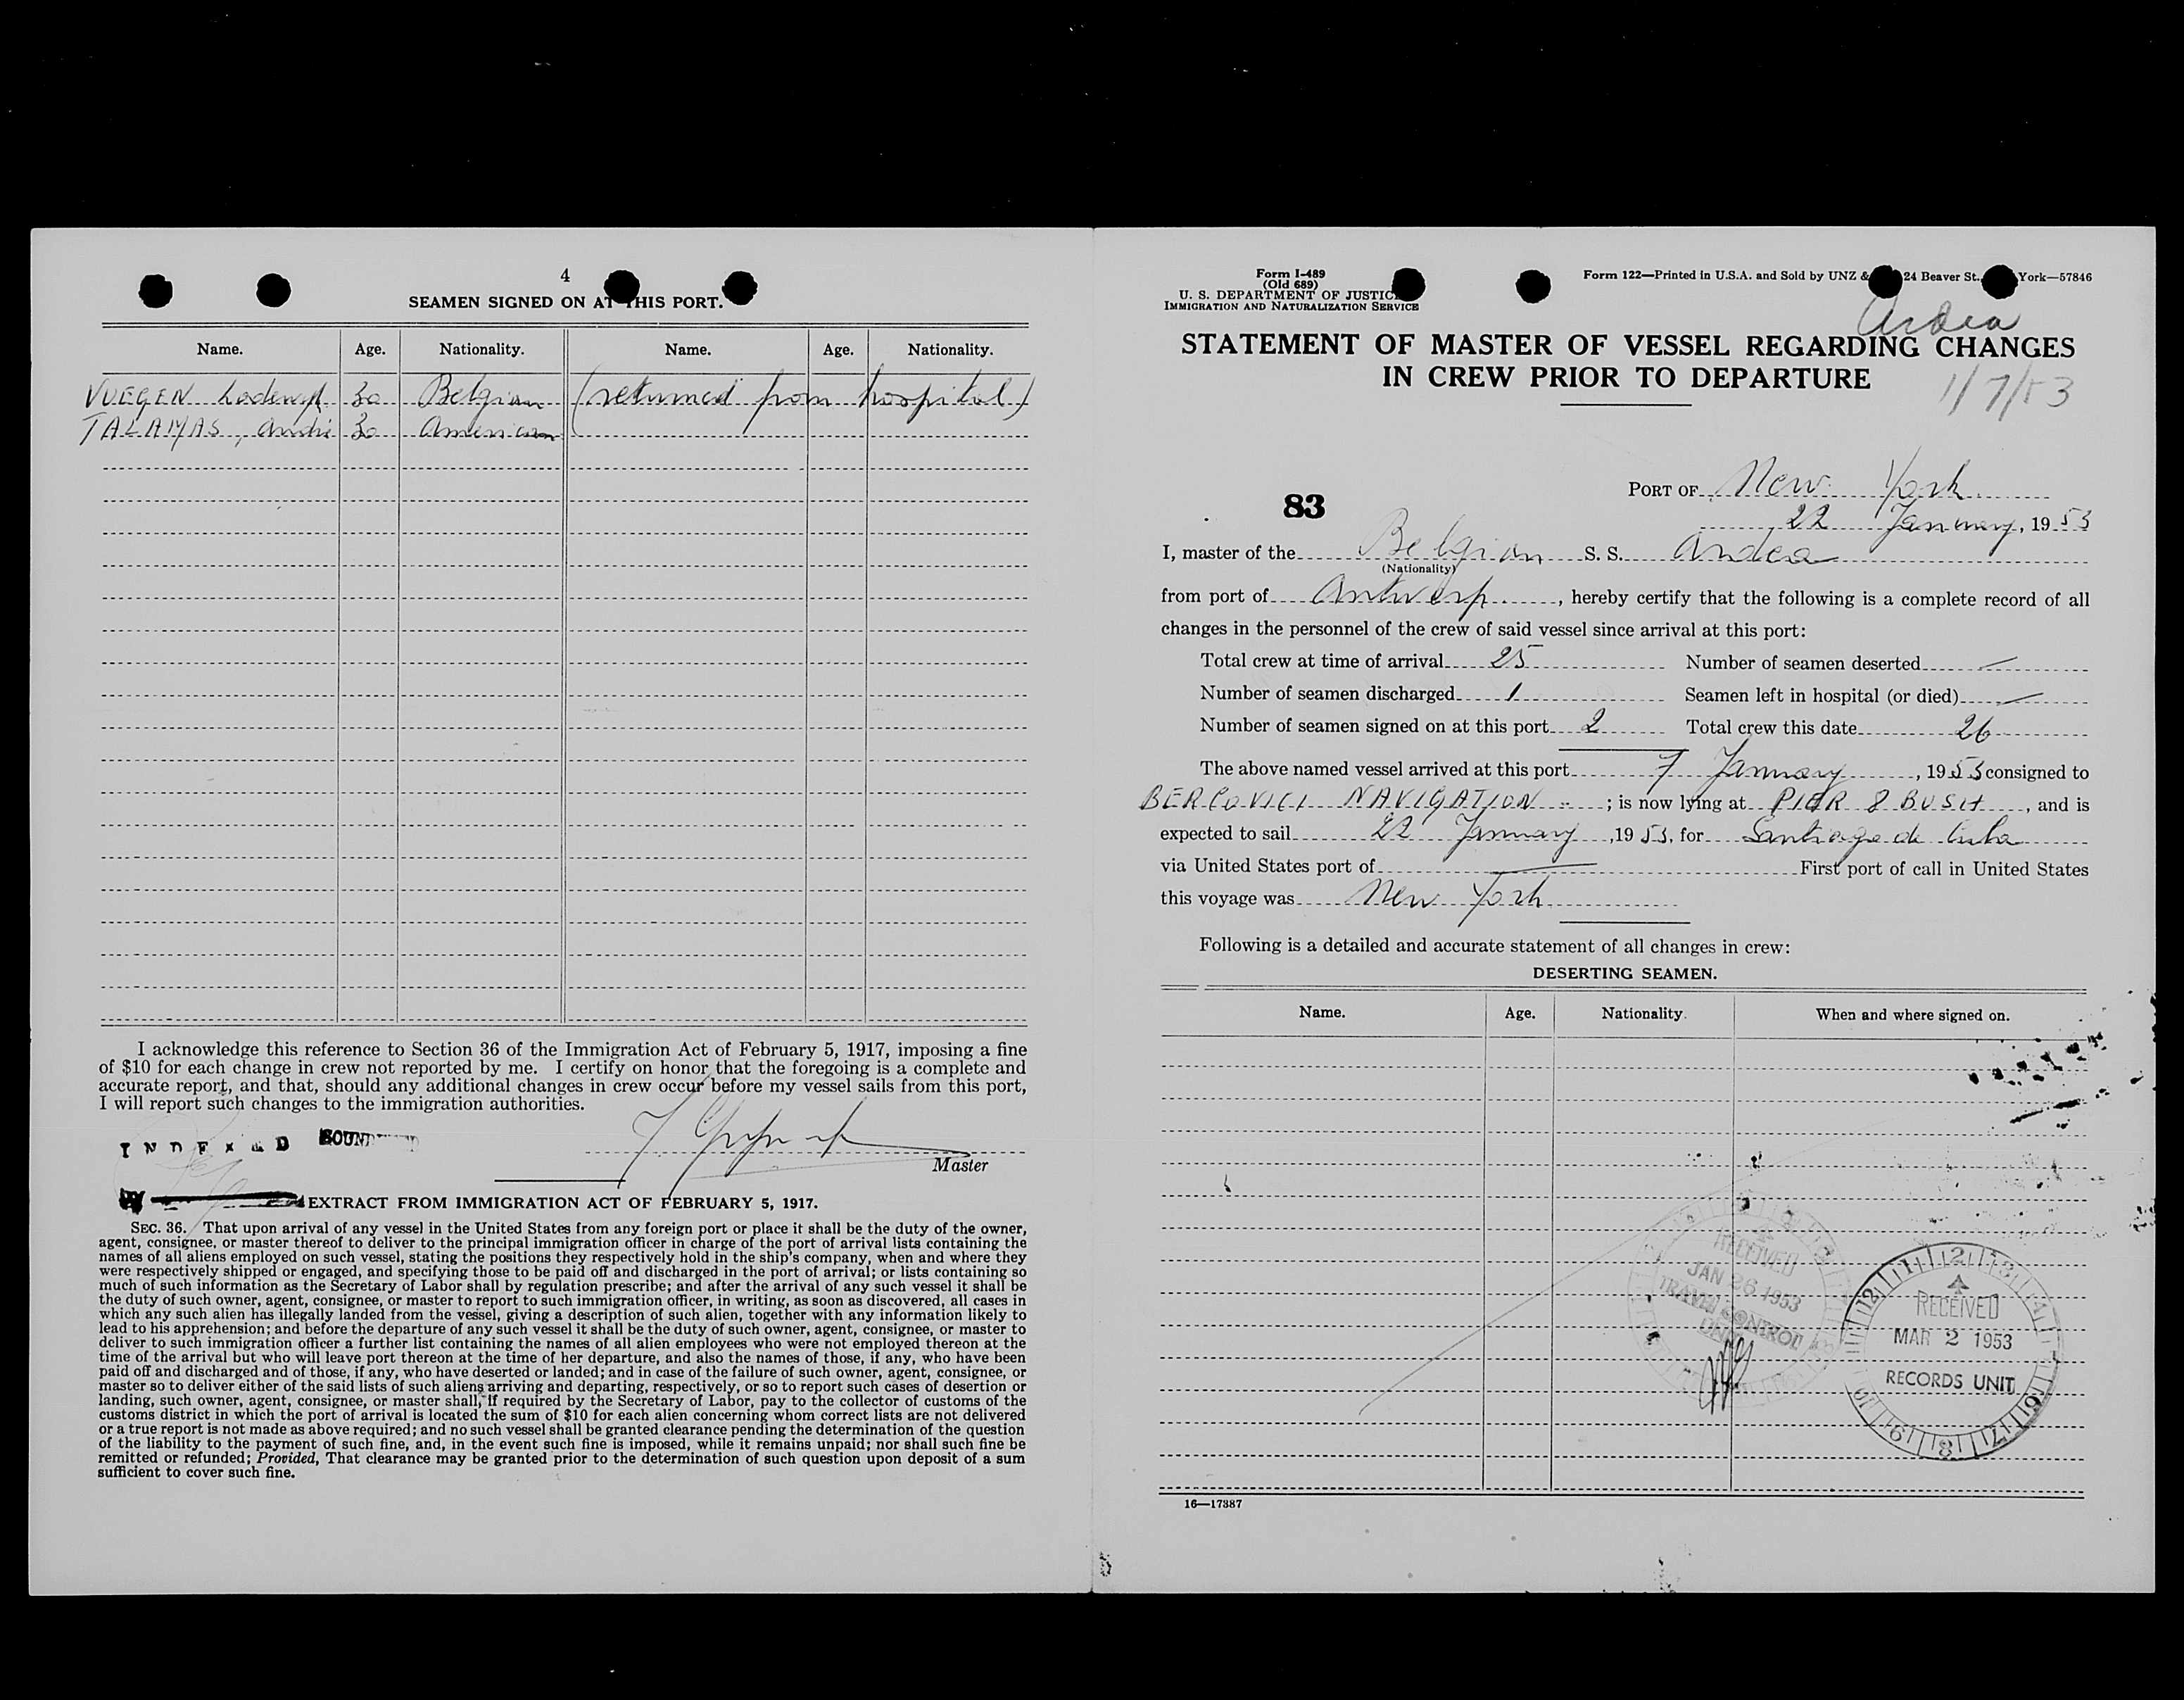 4
SEAMEN SIGNED ON AT THIS PORT.
Name. Age. Nationality. Name. Age. Nationality.
30 Belgian (returned from hospital)
TALAMAS, André 30 American
I acknowledge this reference to Section 36 of the Immigration Act of February 5, 1917, imposing a fine
of $10 for each change in crew not reported by me. I certify on honor that the foregoing is a complete and
accurate report, and that, should any additional changes in crew occur before my vessel sails from this port,
I will report such changes to the immigration authorities.
INDEXED
Master
EXTRACT FROM IMMIGRATION ACT OF FEBRUARY 5, 1917.
SEC. 36. That upon arrival of any vessel in the United States from any foreign port or place it shall be the duty of the owner,
agent, consignee, or master thereof to deliver to the principal immigration officer in charge of the port of arrival lists containing the
names of all aliens employed on such vessel, stating the positions they respectively hold in the ship's company, when and where they
were respectively shipped or engaged, and specifying those to be paid off and discharged in the port of arrival; or lists containing so
much of such information as the Secretary of Labor shall by regulation prescribe; and after the arrival of any such vessel it shall be
the duty of such owner, agent, consignee, or master to report to such immigration officer, in writing, as soon as discovered, all cases in
which any such alien has illegally landed from the vessel, giving a description of such alien, together with any information likely to
lead to his apprehension; and before the departure of any such vessel it shall be the duty of such owner, agent, consignee, or master to
deliver to such immigration officer a further list containing the names of all alien employees who were not employed thereon at the
time of the arrival but who will leave port thereon at the time of her departure, and also the names of those, if any, who have been
paid off and discharged and of those, if any, who have deserted or landed; and in case of the failure of such owner, agent, consignee, or
master so to deliver either of the said lists of such aliens arriving and departing, respectively, or so to report such cases of desertion or
landing, such owner, agent, consignee, or master shall, if required by the Secretary of Labor, pay to the collector of customs of the
customs district in which the port of arrival is located the sum of $10 for each alien concerning whom correct lists are not delivered
or a true report is not made as above required; and no such vessel shall be granted clearance pending the determination of the question
of the liability to the payment of such fine, and, in the event such fine is imposed, while it remains unpaid; nor shall such fine be
remitted or refunded; Provided, That clearance may be granted prior to the determination of such question upon deposit of a sum
sufficient to cover such fine.
Form I-489
(Old 689)
U. S. DEPARTMENT OF JUSTICE
IMMIGRATION AND NATURALIZATION SERVICE
Form 122—Printed in U.S.A. and Sold by UNZ & 24 Beaver St., York—57846
Ardea
STATEMENT OF MASTER OF VESSEL REGARDING CHANGES
IN CREW PRIOR TO DEPARTURE
1/7/53
PORT OF New York
83
22 January, 1953
I, master of the Belgian S. S. Ardea
(Nationality)
from port of Antwerp, hereby certify that the following is a complete record of all
changes in the personnel of the crew of said vessel since arrival at this port:
Total crew at time of arrival 25 Number of seamen deserted —
Number of seamen discharged 1 Seamen left in hospital (or died) —
Number of seamen signed on at this port 2 Total crew this date 26
The above named vessel arrived at this port 7 January, 1953 consigned to
BERCOVICI NAVIGATION; is now lying at PIER 8 BUSH, and is
expected to sail 22 January, 1953, for Santiago de Cuba
via United States port of — First port of call in United States
this voyage was New York
Following is a detailed and accurate statement of all changes in crew:
DESERTING SEAMEN.
Name. Age. Nationality. When and where signed on.
RECEIVED
JAN 26 1953
TRAVEL CONTROL
UNIT
12 1 2 3 4 6 7 8 9 10
RECEIVED
MAR 2 1953
RECORDS UNIT
16—17387